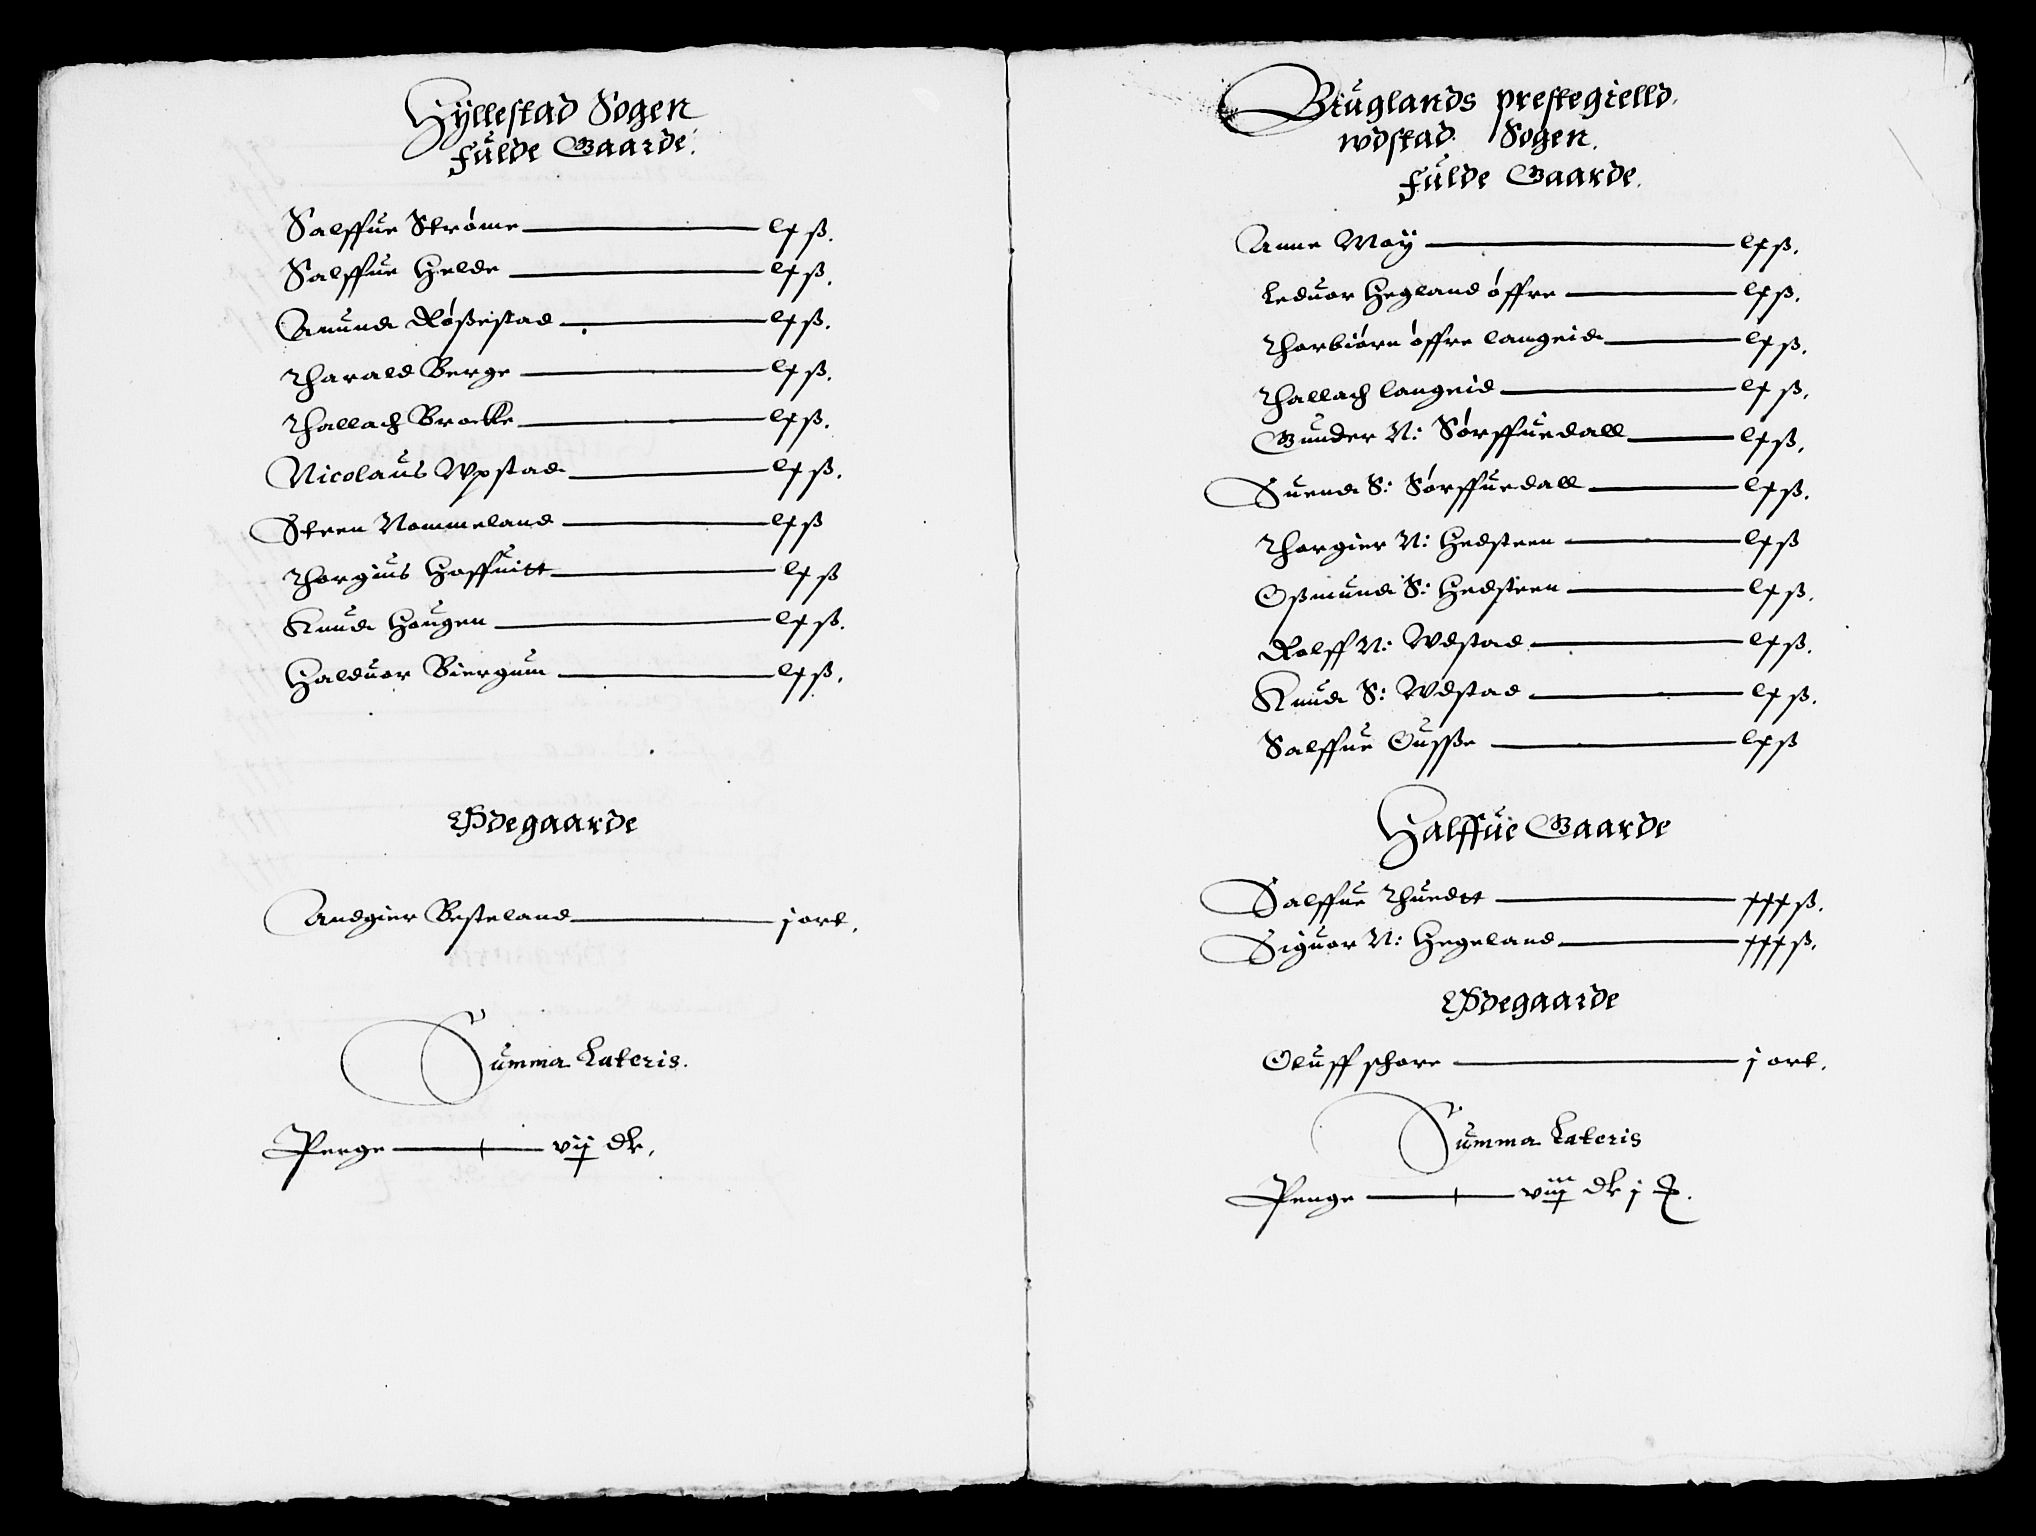 Hyllestad Sogen
Fulde Gaarde.
Salffue Strøme lx ß.
Salffue Helde lx ß.
Amund Røßestad lx ß.
Tharald Berge lx ß.
Thallach Brocke lx ß.
Nicolaus Wpstad lx ß.
Steen Nommeland lx ß
Thorgius Hoffuitt lx ß
Knud Hougen lx ß.
Halduor Biergum lx ß.
Ødegaarde
Andgier Besteland j ort.
Summa Lateris.
Penge vij dlr.
Biuglands prestegielld.
wdstad Sogen.
Fulde Gaarde.
Anne Moÿ lx ß.
Leduor Hegland øffre lx ß.
Thorbiørn øffre langeid lx ß.
Thallach langeid lx ß.
Gunder N: Sørffuedall lx ß.
Suend S: Sørffuedall lx ß.
Thorgier N: Hedsteen lx ß
Oßmund S: Hedsteen lx ß.
Rolff N: Wdstad lx ß.
Knud S: Wdstad lx ß.
Salffue Ousße lx ß
Halffue Gaarde
Salffue Thuedtt xxx ß.
Siguor N: Hegeland xxx ß.
Ødegaarde
Oluff schore j ort.
Summa Lateris
Penge viij dlr j